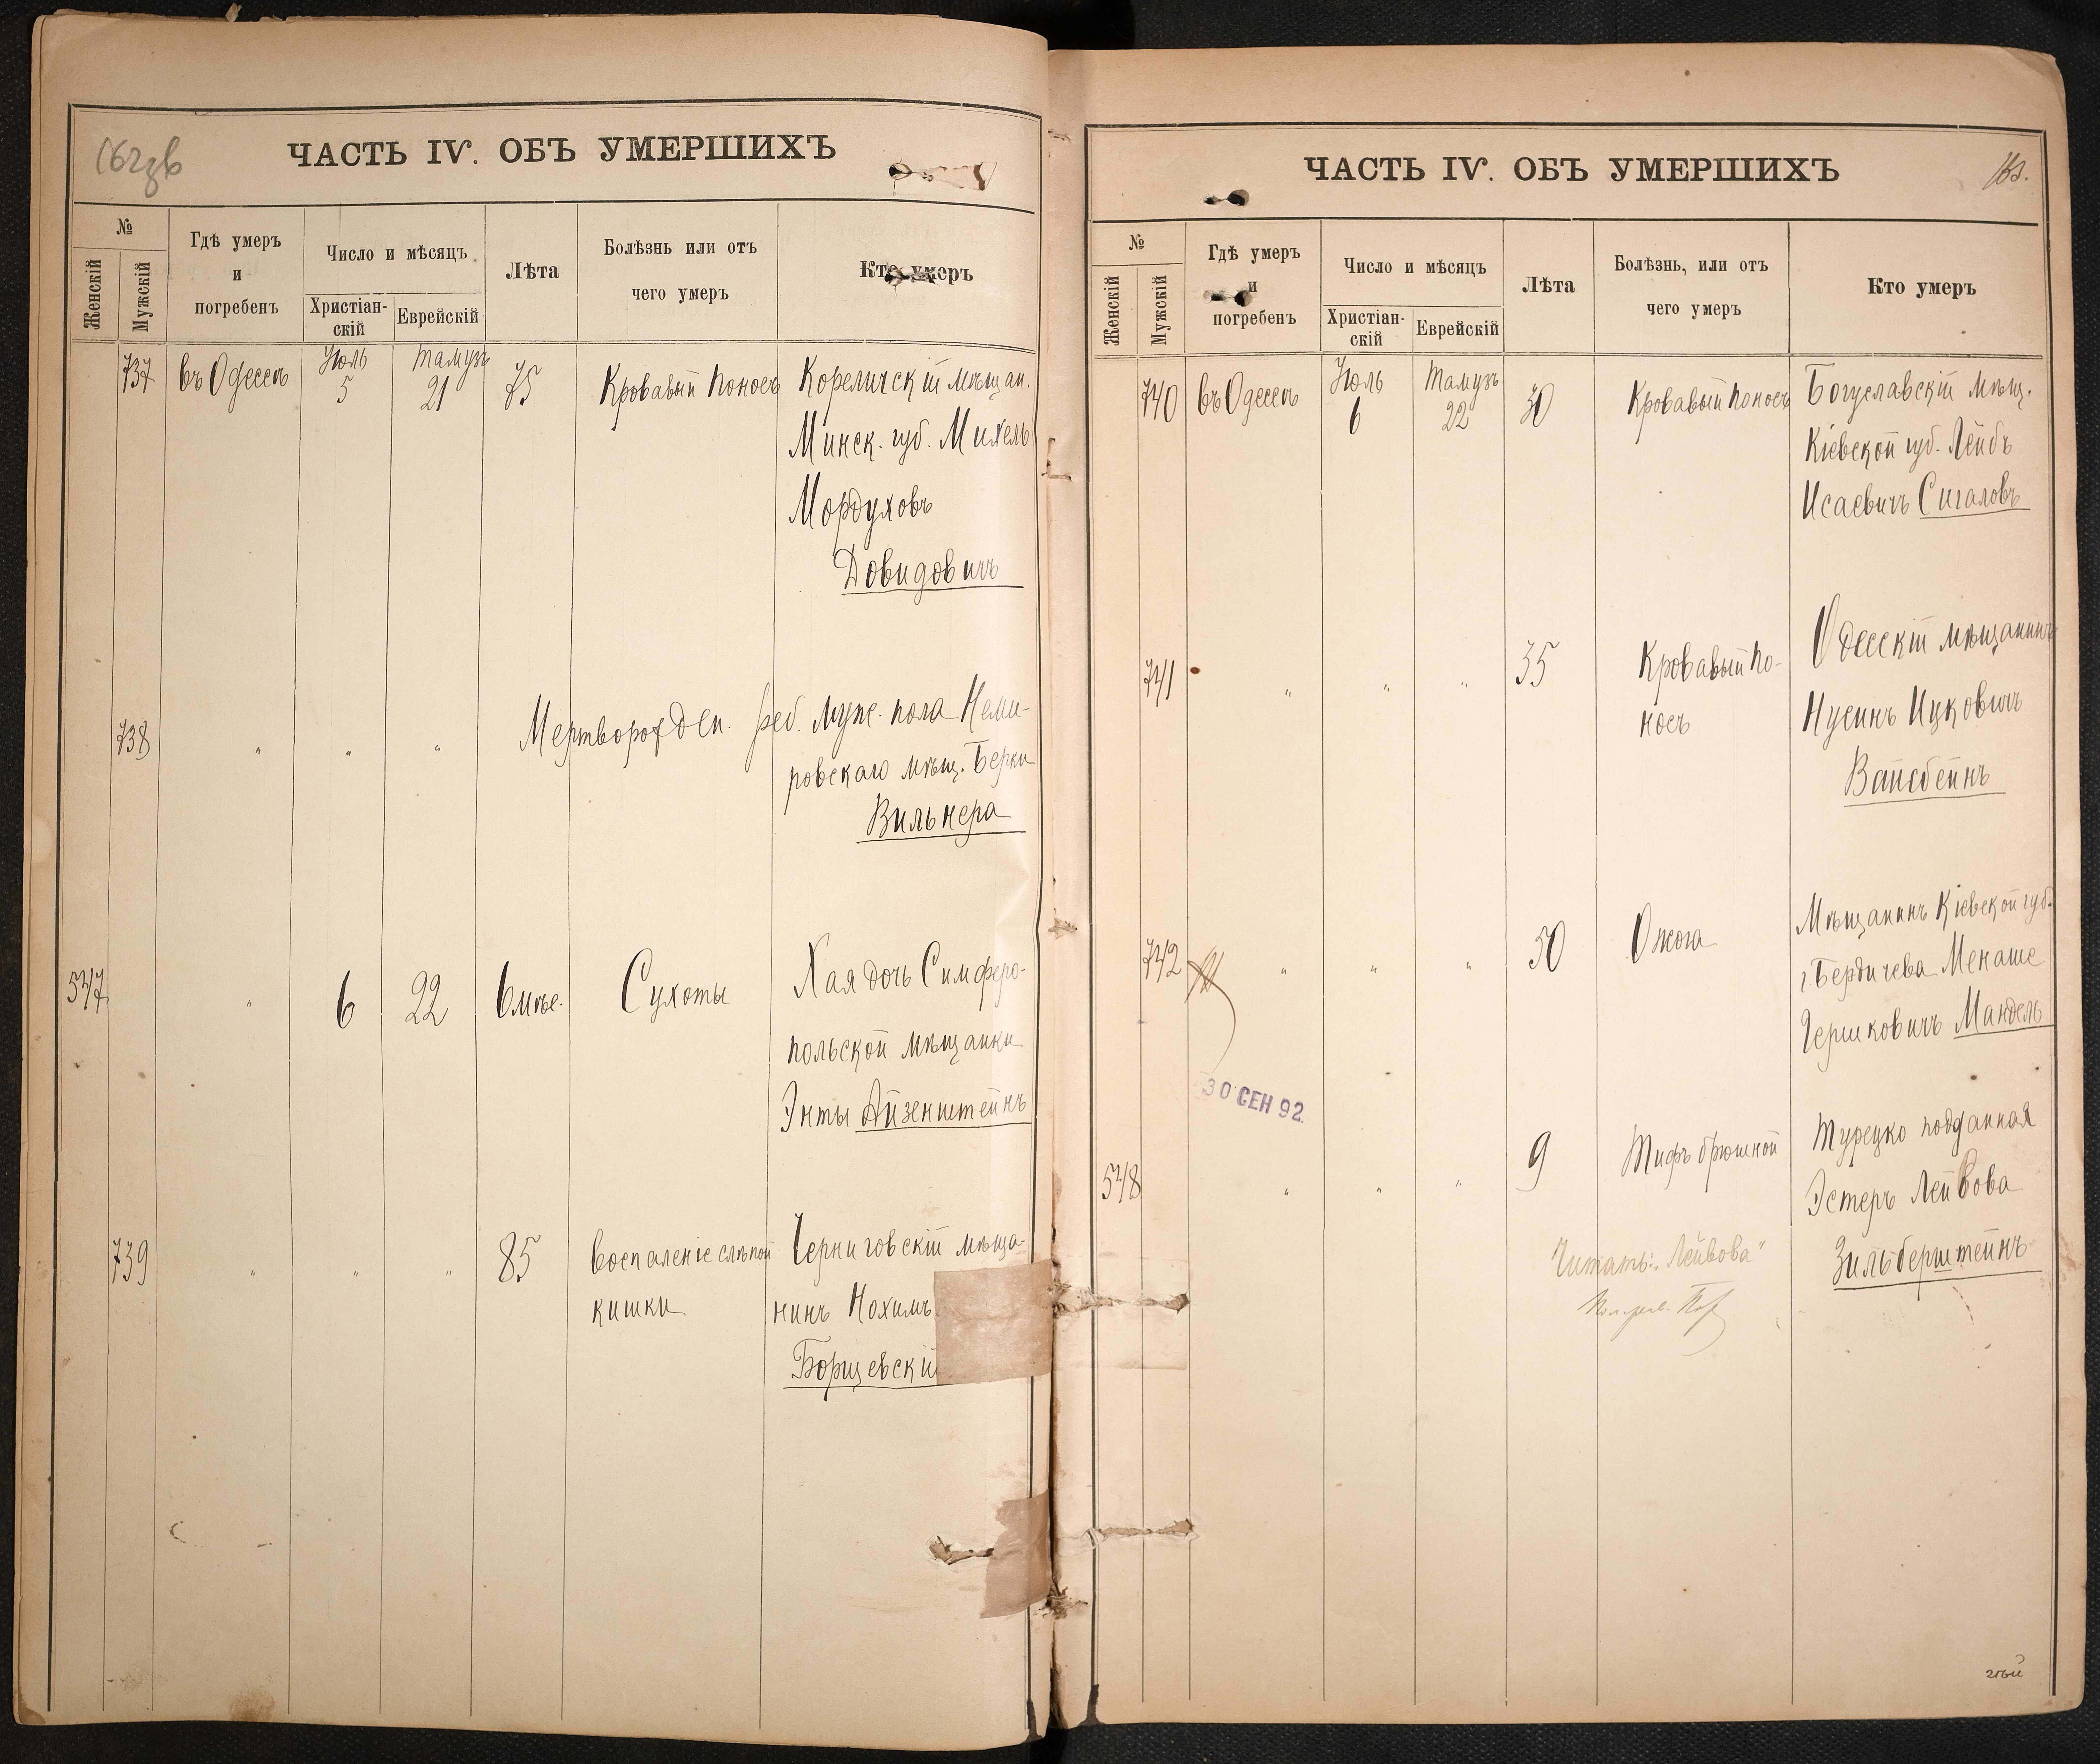 162зв
ЧАСТЬ IV. ОБЪ УМЕРШИХЪ
№
Женскій
Мужскій
Гдѣ умеръ
и
погребенъ
Число и мѣсяцъ
Христіан-
скій
Еврейскій
Лѣта
Болѣзнь или отъ
чего умеръ
Кто умеръ
737 въ Одессѣ Іюль 5 Тамузъ 21 75 Кровавый поносъ Кореличскій мѣщан.
Минск. губ. Михель
Мордуховъ
Довидовичъ
738 " " " Мертворожден. реб. муж. пола Неми-
ровскаго мѣщ. Берки
Вильнера
547 " 6 22 6 мѣс. Сухоты Хая дочь Симферо-
польской мѣщанки
Энты Айзенштейнъ
739 " " " 85 воспаленіе слѣпой Черниговскій мѣща-
кишки нинъ Нохимъ
Борщевскій
ЧАСТЬ IV. ОБЪ УМЕРШИХЪ
163.
№
Женскій
Мужскій
Гдѣ умеръ
и
погребенъ
Число и мѣсяцъ
Христіан-
скій
Еврейскій
Лѣта
Болѣзнь, или отъ
чего умеръ
Кто умеръ
740 въ Одессѣ Іюль 6 Тамузъ 22 30 Кровавый поносъ Богуславскій мѣщ.
Кіевской губ. Лейбъ
Исаевичъ Сигаловъ
741 " " " 35 Кровавый по- Одесскій мѣщанинъ
носъ Нусинъ Ицковичъ
Вайсбейнъ
742 " " " 50 Ожога Мѣщанинъ Кіевской губ.
г. Бердичева Менаше
Гершковичъ Мандель
30 СЕН 92.
548 " " " 9 Тифъ брюшной Турецко подданная
Эстеръ Лейвова
Зильберштейнъ
Читать: "Лейвова"